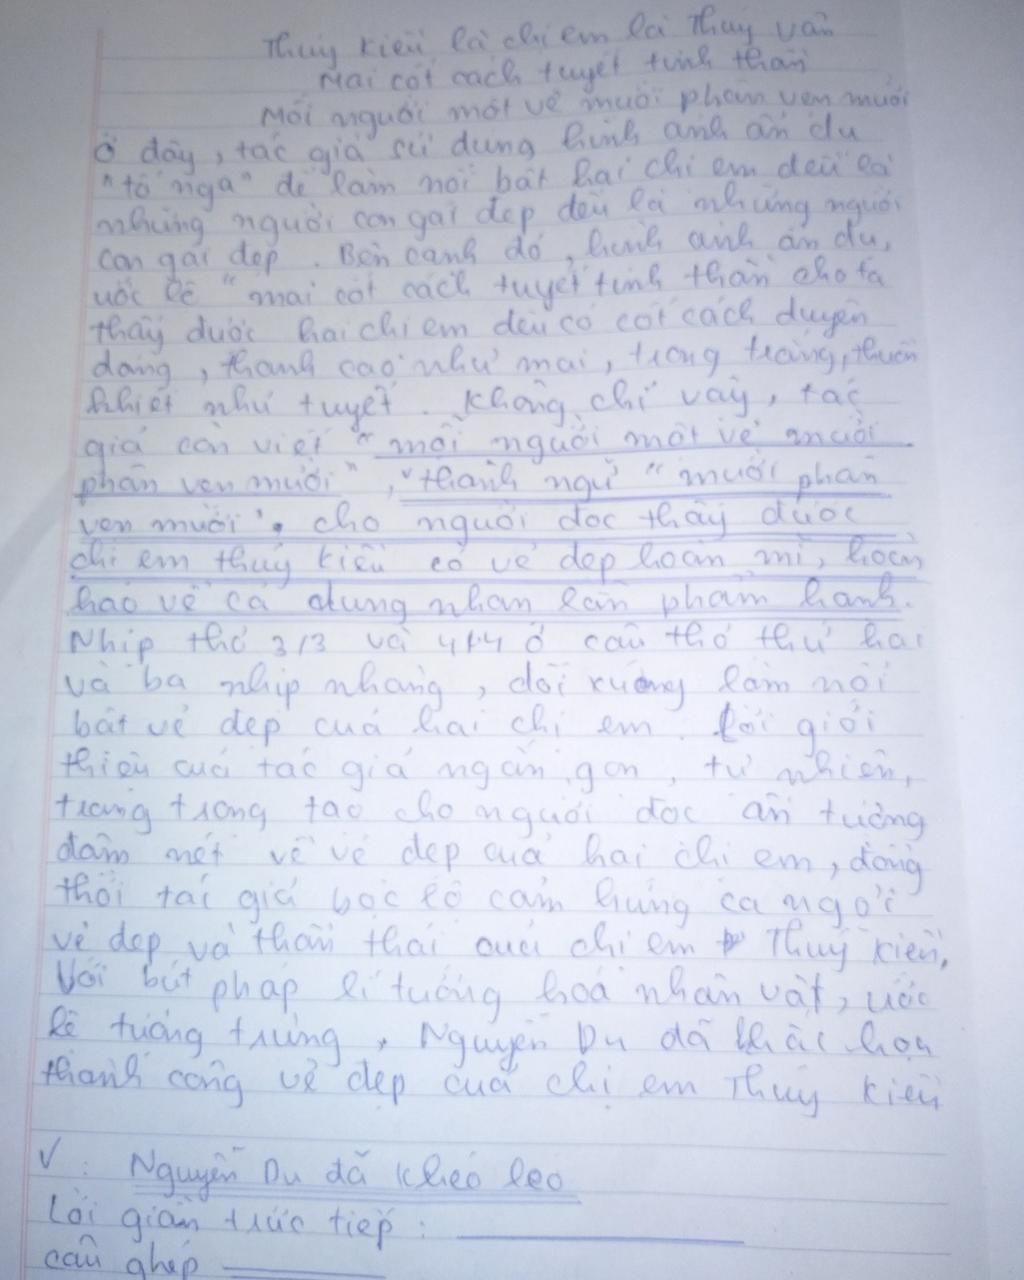 Thuý Kiều là chị em là Thuý Vân
Mai cốt cách tuyết tinh thần
Mỗi người một vẻ mười phân vẹn mười
Ở đây, tác giả sử dụng hình ảnh ẩn dụ
"tố nga" để làm nổi bật hai chị em đều là
những người con gái đẹp đều là những người
con gái đẹp. Bên cạnh đó, hình ảnh ẩn dụ,
ước lệ "mai cốt cách tuyết tinh thần cho ta
thấy được hai chị em đều có cốt cách duyên
dáng, thanh cao như mai, trong trắng, thuần
khiết như tuyết. Không chỉ vậy, tác
giả còn viết "mỗi người một vẻ mười
phân vẹn mười", "thành ngữ "mười phân
vẹn mười". cho người đọc thấy được
chị em thuý kiều có vẻ đẹp hoàn mĩ, hoàn
hảo về cả dung nhan lẫn phẩm hạnh.
Nhịp thơ 3/3 và 4/4 ở câu thơ thứ hai
và ba nhịp nhàng, đối xứng làm nổi
bật vẻ đẹp của hai chị em. Lời giới
thiệu của tác giả ngắn gọn, tự nhiên,
trang trọng tạo cho người đọc ấn tượng
đậm nét về vẻ đẹp của hai chị em, đồng
thời tác giả bộc lộ cảm hứng ca ngợi
vẻ đẹp và thần thái của chị em Thuý Kiều.
Với bút pháp lí tưởng hoá nhân vật, ước
lệ tượng trưng, Nguyễn Du đã khắc hoạ
thành công vẻ đẹp của chị em Thuý Kiều
V: Nguyễn Du đã khéo léo
Lời giãn trực tiếp:
câu ghép